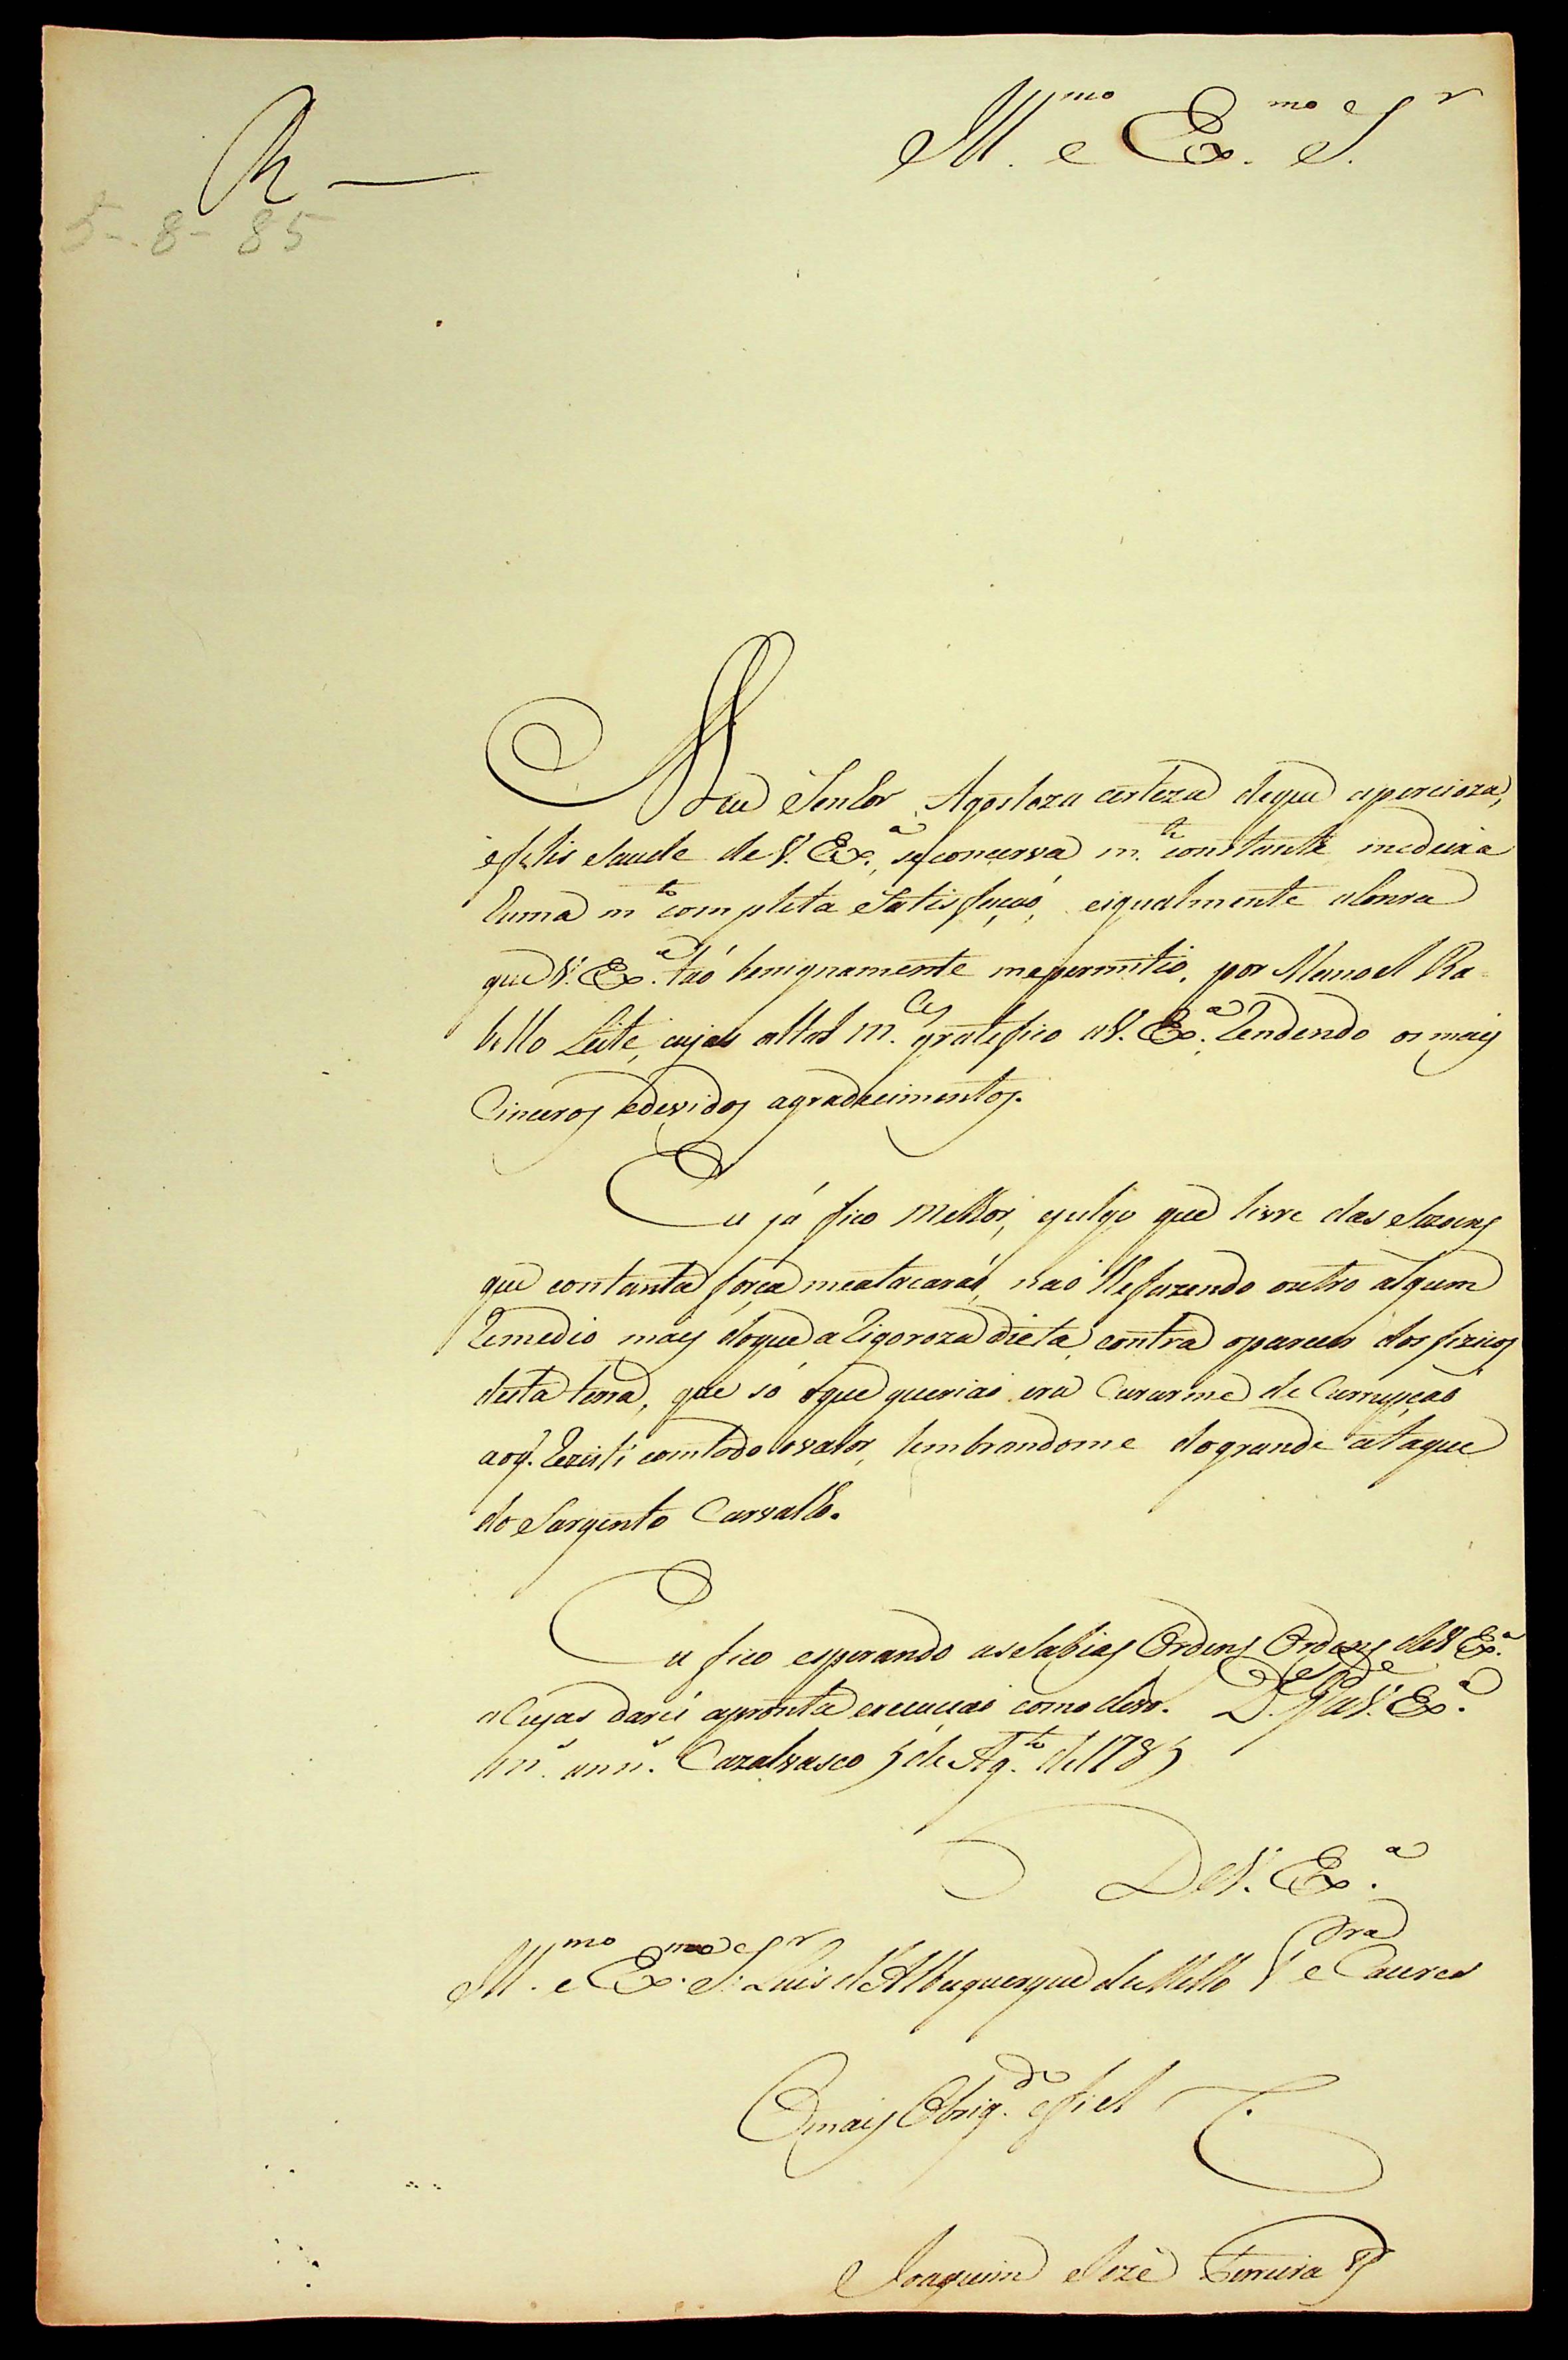 R
5-8-85
Ill.mo e Ex.mo S.r
Meu Senhor. A gostoza certeza deque apercioza,
efelis Saude de V. Ex.a, seconcerva m.to constante medeixa
huma m.to completa Satisfaçaó, eigualmente ahonra
que V. Ex.a taó benignamente mepermitio, por Manoel Ra-
bello Leite, cujas altas M.ces gratefico a V. Ex.a Rendendo os mais
Cinceros edevidos agradecimentos.
Eu já fico Melhor, ejulgo que livre das Sezoens
que contanta força meatacaraó, naó lhefazendo outro algum
Remedio mais doque a Rigoroza dieta, contra oparecer dos fizicos
desta terra, que só oque queriaó era Curarme de Currupçaó
aoq. Rezisti comtodo ovalor, lembrandome dogrande ataque
do Sargento Carvalho.
Eu fico esperando as Sabias Ordens Ordens de V Ex.a
aCujas darei apronta execuçaó como devo. D.s g.de a V. Ex.a
m.s ann.s Cazalvasco 5 de Ag.to de 1785
De V. Ex.a
Ill.mo e Ex.mo S.r Luis d'Albuquerque de Mello P.ra e Caceres
Omais Obrig.do efiel C.
Joaquim Jozé Ferreira